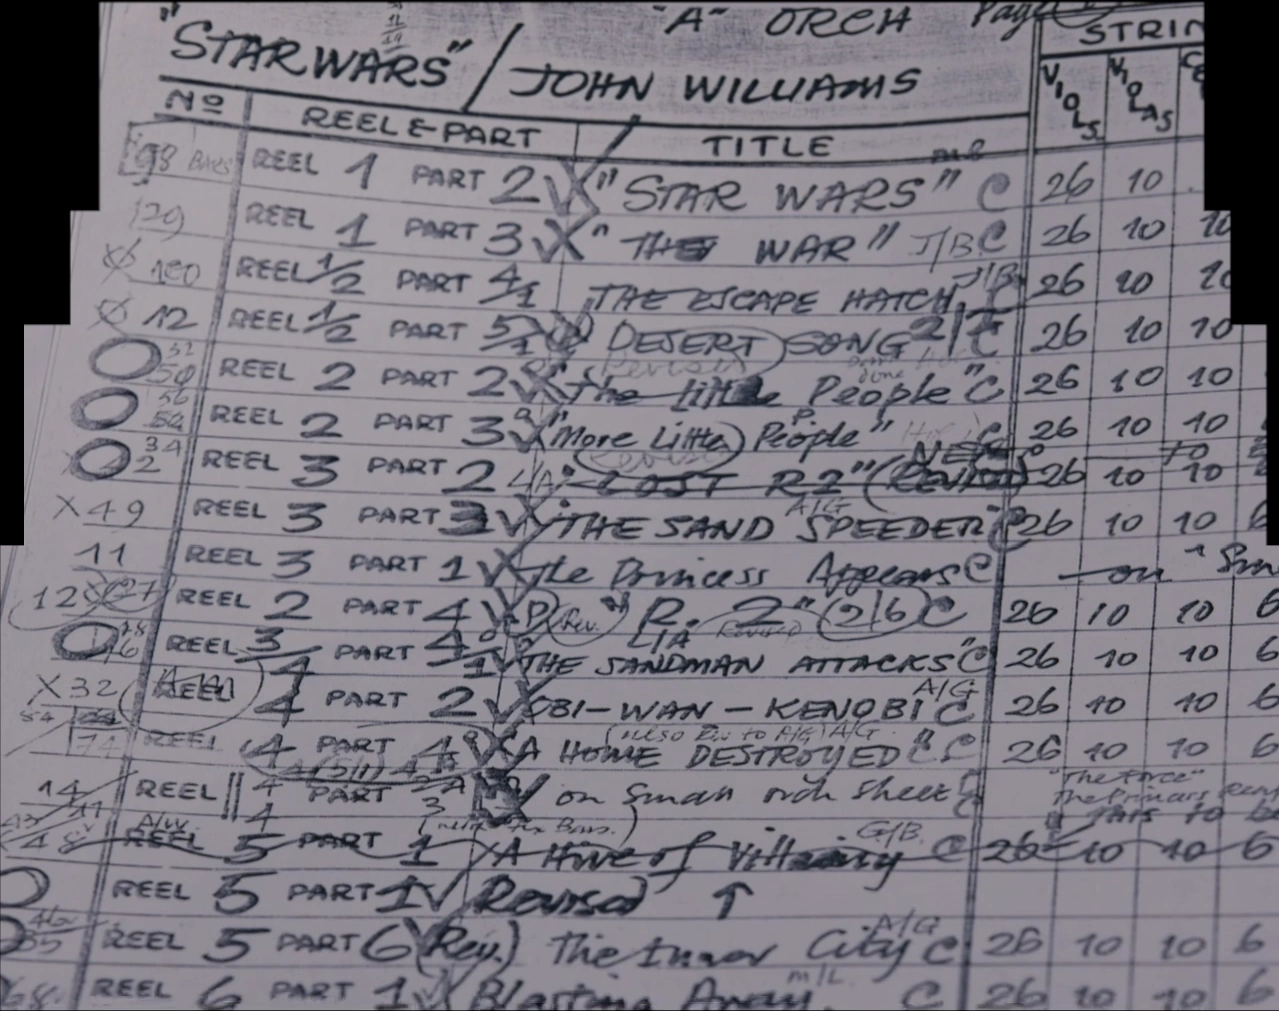 "A" ORCH Page
"STAR WARS" / JOHN WILLIAMS
STRIN
No REEL & PART TITLE VIOLS VIOLAS
98 BARS REEL 1 PART 2 "STAR WARS" C 26 10
129 REEL 1 PART 3 "THE WAR" J/B C 26 10 10
180 REEL 1/2 PART 4/1 THE ESCAPE HATCH J/B C 26 10 10
12 REEL 1/2 PART 5/1 DESERT SONG 2/ C 26 10 10
Revision done
REEL 2 PART 2 "The Little People" C 26 10 10
REEL 2 PART 3 "More Little People" C 26 10 10
Revised NEW
34 2 REEL 3 PART 2 L/A "LOST R2" (Revised) 26 10 10
A/G
X 49 REEL 3 PART 3 THE SAND SPEEDER C 26 10 10 6
11 REEL 3 PART 1 The Princess Appears C on "Sm
12 REEL 2 PART 4 (Rev.) "R. 2" (2/6) C 26 10 10 6
L/A Revised
REEL 3/4 PART 4/1 THE SANDMAN ATTACKS" C 26 10 10 6
X 32 REEL 4 PART 2 OBI-WAN-KENOBI A/G C 26 10 10 6
(also Rev to A/G) A/G
74 REEL 4 PART 4 A HOME DESTROYED" C 26 10 10 6
14 REEL 4 PART on small orch sheet C "The Force"
The Princess
This to be
A/W. G/B.
48 REEL 5 PART 1 A Hive of Villainy C 26 10 10 6
REEL 5 PART 1 Revised ↑
A/G
REEL 5 PART 6 (Rev.) The Inner City C 26 10 10 6
M/L
68 REEL 6 PART 1 Blasting Away. C 26 10 10 6